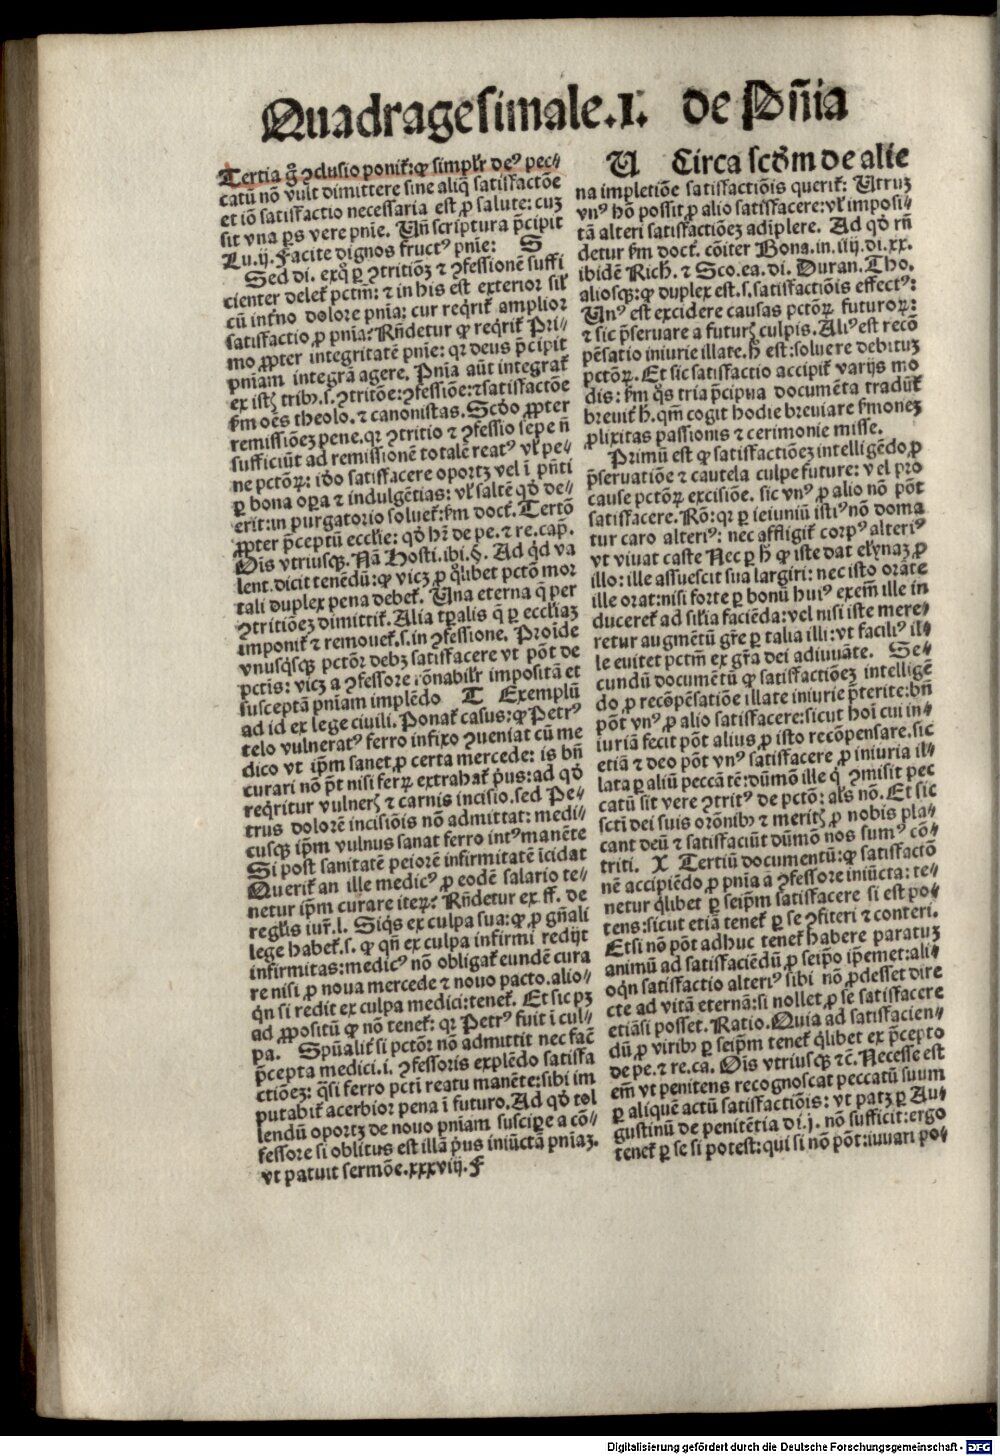 Quadragesimale.I. de Pñia
Tertia gͦ ꝯclusio ponit᷑: ꝙ simplr̃ deꝰ pec⸗
catũ nõ vult dimittere sine aliq̃ satisfactõe
et iõ satisfactio necessaria est ꝓ salute: cuz
sit vna ꝑs vere pnĩe. Uñ scriptura p̃cipit
Lu.ij. Facite dignos fructꝰ pnĩe: S
Sed di. exq̃ ꝑ ꝯtritiõꝫ ⁊ ꝯfessionẽ suffi
cienter delet᷑ pctm̃: ⁊ in his est exterior sil̕
cũ int̕no dolore pnĩa: cur req̃rit᷑ amplior
satisfactio ꝓ pnĩa? Rñdetur ꝙ req̃rit᷑ Pri⸗
mo ꝓpter integritatẽ pnĩe: qꝛ deus p̃cipit
pnĩam integrã agere. Pnĩa aũt integrat᷑
ex istꝭ tribꝰ.s. ꝯtritõe: ꝯfessiõe: ⁊ satisfactõe
ẜm oẽs theolo. ⁊ canonistas. Scd̕o ꝓpter
remissiõeꝫ pene. qꝛ ꝯtritio ⁊ ꝯfessio sepe ñ
sufficiũt ad remissionẽ totalẽ reatꝰ vl̕ pe⸗
ne pctõꝝ: id̕o satisfacere oportꝫ vel ĩ pñti
ꝑ bona oꝑa ⁊ indulgẽtias: vl̕ saltẽ qd̕ de⸗
erit: in purgatorio soluet᷑: ẜm doct᷑. Tertõ
ꝓpter p̃ceptũ ecclie: qd̕ hr̃ de pe. ⁊ re. cap̃.
Ois vtriusqꝫ. Nã Hosti. ibi. §. Ad qd̕ va
lent. dicit tenẽdũ: ꝙ vicꝫ ꝓ ql̕ibet pctõ mor
tali duplex pena debet᷑. Una eterna q̃ per
ꝯtritiõeꝫ dimittit᷑. Alia tp̃alis q̃ ꝑ eccliaꝫ
imponit᷑ ⁊ remouet᷑.s. in ꝯfessione. Proĩde
vnusq̃sqꝫ pctõr debꝫ satisfacere vt põt de
pctĩs: vicꝫ a ꝯfessore rõnabilr̃ impositã et
susceptã pnĩam implẽdo T Exemplũ
ad id ex lege ciuili. Ponat᷑ casus: ꝙ Petrꝰ
telo vulneratꝰ ferro infixo ꝯueniat cũ me
dico vt ip̃m sanet ꝓ certa mercede: is bñ
curari nõ põt nisi ferꝝ extrahat᷑ pꝰus: ad qd̕
req̃ritur vulnerꝭ ⁊ carnis incisio. sed Pe⸗
trus dolorẽ incisiõis nõ admittat: medi⸗
cusqꝫ ip̃m vulnus sanat ferro intꝰ manẽte
Si post sanitatẽ peiorẽ infirmitatẽ ĩcidat
Querit᷑ an ille medicꝰ ꝓ eodẽ salario te⸗
netur ip̃m curare iteꝝ? Rñdetur ex ff. de
regl̕is iur̃. l. Siq̃s ex culpa sua: ꝙ ꝓ gñali
lege habet᷑.s. ꝙ qñ ex culpa infirmi redijt
infirmitas: medicꝰ nõ obligat᷑ eundẽ cura
re nisi ꝓ noua mercede ⁊ nouo pacto. alio⸗
q̃n si redit ex culpa medici: tenet᷑. Et sic pꝫ
ad ꝓpositũ ꝙ nõ tenet᷑: qꝛ Petrꝰ fuit ĩ cul⸗
pa. Spũalit᷑ si pctõr nõ admittit nec facẽ
p̃cepta medici.i. ꝯfessoris explẽdo satisfa
ctiõeꝫ: q̃si ferro pctĩ reatu manẽte: sibi im
putabit᷑ acerbior pena ĩ futuro. Ad qd̕ tol
lendũ oportꝫ de nouo pniam suscipe a cõ⸗
fessore si oblitus est illã pꝰus iniũctã pnĩaꝫ.
vt patuit sermõe.xxxviij. F
U Circa scd̕m de alie
na impletiõe satisfactiõis querit᷑: Utruꝫ
vnꝰ hõ possit ꝓ alio satisfacere: vl̕ imposi⸗
tã alteri satisfactiõeꝫ adĩplere. Ad qd̕ rñ
detur ẜm doct᷑. cõiter Bona. in. iiij. di. xx.
ibidẽ Rich. ⁊ Sco. ea. di. Duran. Tho.
aliosqꝫ: ꝙ duplex est.s. satisfactiõis effectꝰ:
Unꝰ est excidere causas pctõꝝ futuroꝝ:
⁊ sic p̃seruare a futurꝭ culpis. Aliꝰ est recõ
pẽsatio iniurie illate. h̕ est: soluere debituꝫ
pctõꝝ. Et sic satisfactio accipit᷑ varijs mo
dis: ẜm q̃s tria p̃cipua documẽta tradũt᷑
breuit᷑ h̕. qm̃ cogit hodie breuiare ẜmoneꝫ
ꝓlixitas passionis ⁊ cerimonie misse.
Primũ est ꝙ satisfactiõeꝫ intelligẽdo ꝓ
p̃seruatiõe ⁊ cautela culpe future: vel pro
cause pctõꝝ excisiõe. sic vnꝰ ꝓ alio nõ põt
satisfacere. Rõ: qꝛ ꝑ ieiuniũ istiꝰ nõ doma
tur caro alteriꝰ: nec affligit᷑ corpꝰ alteriꝰ
vt viuat caste Nec ꝑ h̕ ꝙ iste dat elynaꝫ ꝓ
illo: ille assuescit sua largiri: nec isto orãte
ille orat: nisi forte ꝑ bonũ huiꝰ exem̃ ille in
duceret᷑ ad sil̕ia faciẽda: vel nisi iste mere⸗
retur augmẽtũ gr̃e ꝑ talia illi: vt faciliꝰ il⸗
le euitet pctm̃ ex gr̃a dei adiuuãte. Se⸗
cundũ documẽtũ ꝙ satisfactiõeꝫ intelligẽ
do ꝓ recõpẽsatiõe illate iniurie p̃terite: bñ
põt vnꝰ ꝓ alio satisfacere: sicut hoĩ cui in⸗
iuriã fecit põt alius ꝓ isto recõpensare. sic
etiã ⁊ deo põt vnꝰ satisfacere ꝓ iniuria il⸗
lata ꝑ aliũ peccãtẽ: dũmõ ille q̃ ꝯmisit pec
catũ sit vere ꝯtritꝰ de pctõ: als nõ. Et sic
sctĩ dei suis orõnibꝰ ⁊ meritꝭ ꝓ nobis pla⸗
cant deũ ⁊ satisfaciũt dũmõ nos sumꝰ cõ⸗
triti. X Tertiũ documentũ: ꝙ satisfactõ
nẽ accipiẽdo ꝓ pnĩa a ꝯfessore iniũcta: te⸗
netur ql̕ibet ꝑ seip̃m satisfacere si est po⸗
tens: sicut etiã tenet᷑ ꝑ se ꝯfiteri ⁊ conteri.
Etsi nõ põt adhuc tenet᷑ habere paratuꝫ
animũ ad satisfaciẽdũ ꝓ seip̃o ip̃emet: ali⸗
oq̃n satisfactio alteriꝰ sibi nõ ꝓdesset dire
cte ad vitã eternã: si nollet ꝓ se satisfacere
etiãsi posset. Ratio. Quia ad satisfacien⸗
dũ ꝓ viribꝰ ꝑ seip̃m tenet᷑ ql̕ibet ex p̃cepto
de pe. ⁊ re. ca. Oĩs vtriusqꝫ ⁊c̃. Necesse est
em̃ vt penitens recognoscat peccatũ suum
ꝑ aliquẽ actũ satisfactiõis: vt patꝫ ꝑ Au⸗
gustinũ de penitẽtia di.j. nõ sufficit: ergo
tenet᷑ ꝑ se si potest: qui si nõ põt: iuuari po⸗
Digitalisierung gefördert durch die Deutsche Forschungsgemeinschaft - DFG